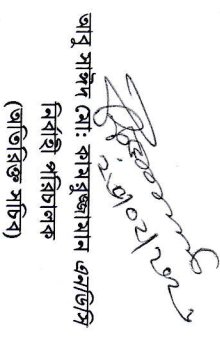 আবু সাঈদ মো: কামরুজ্জামান এনডিসি
নির্বাহী পরিচালক
(অতিরিক্ত সচিব)